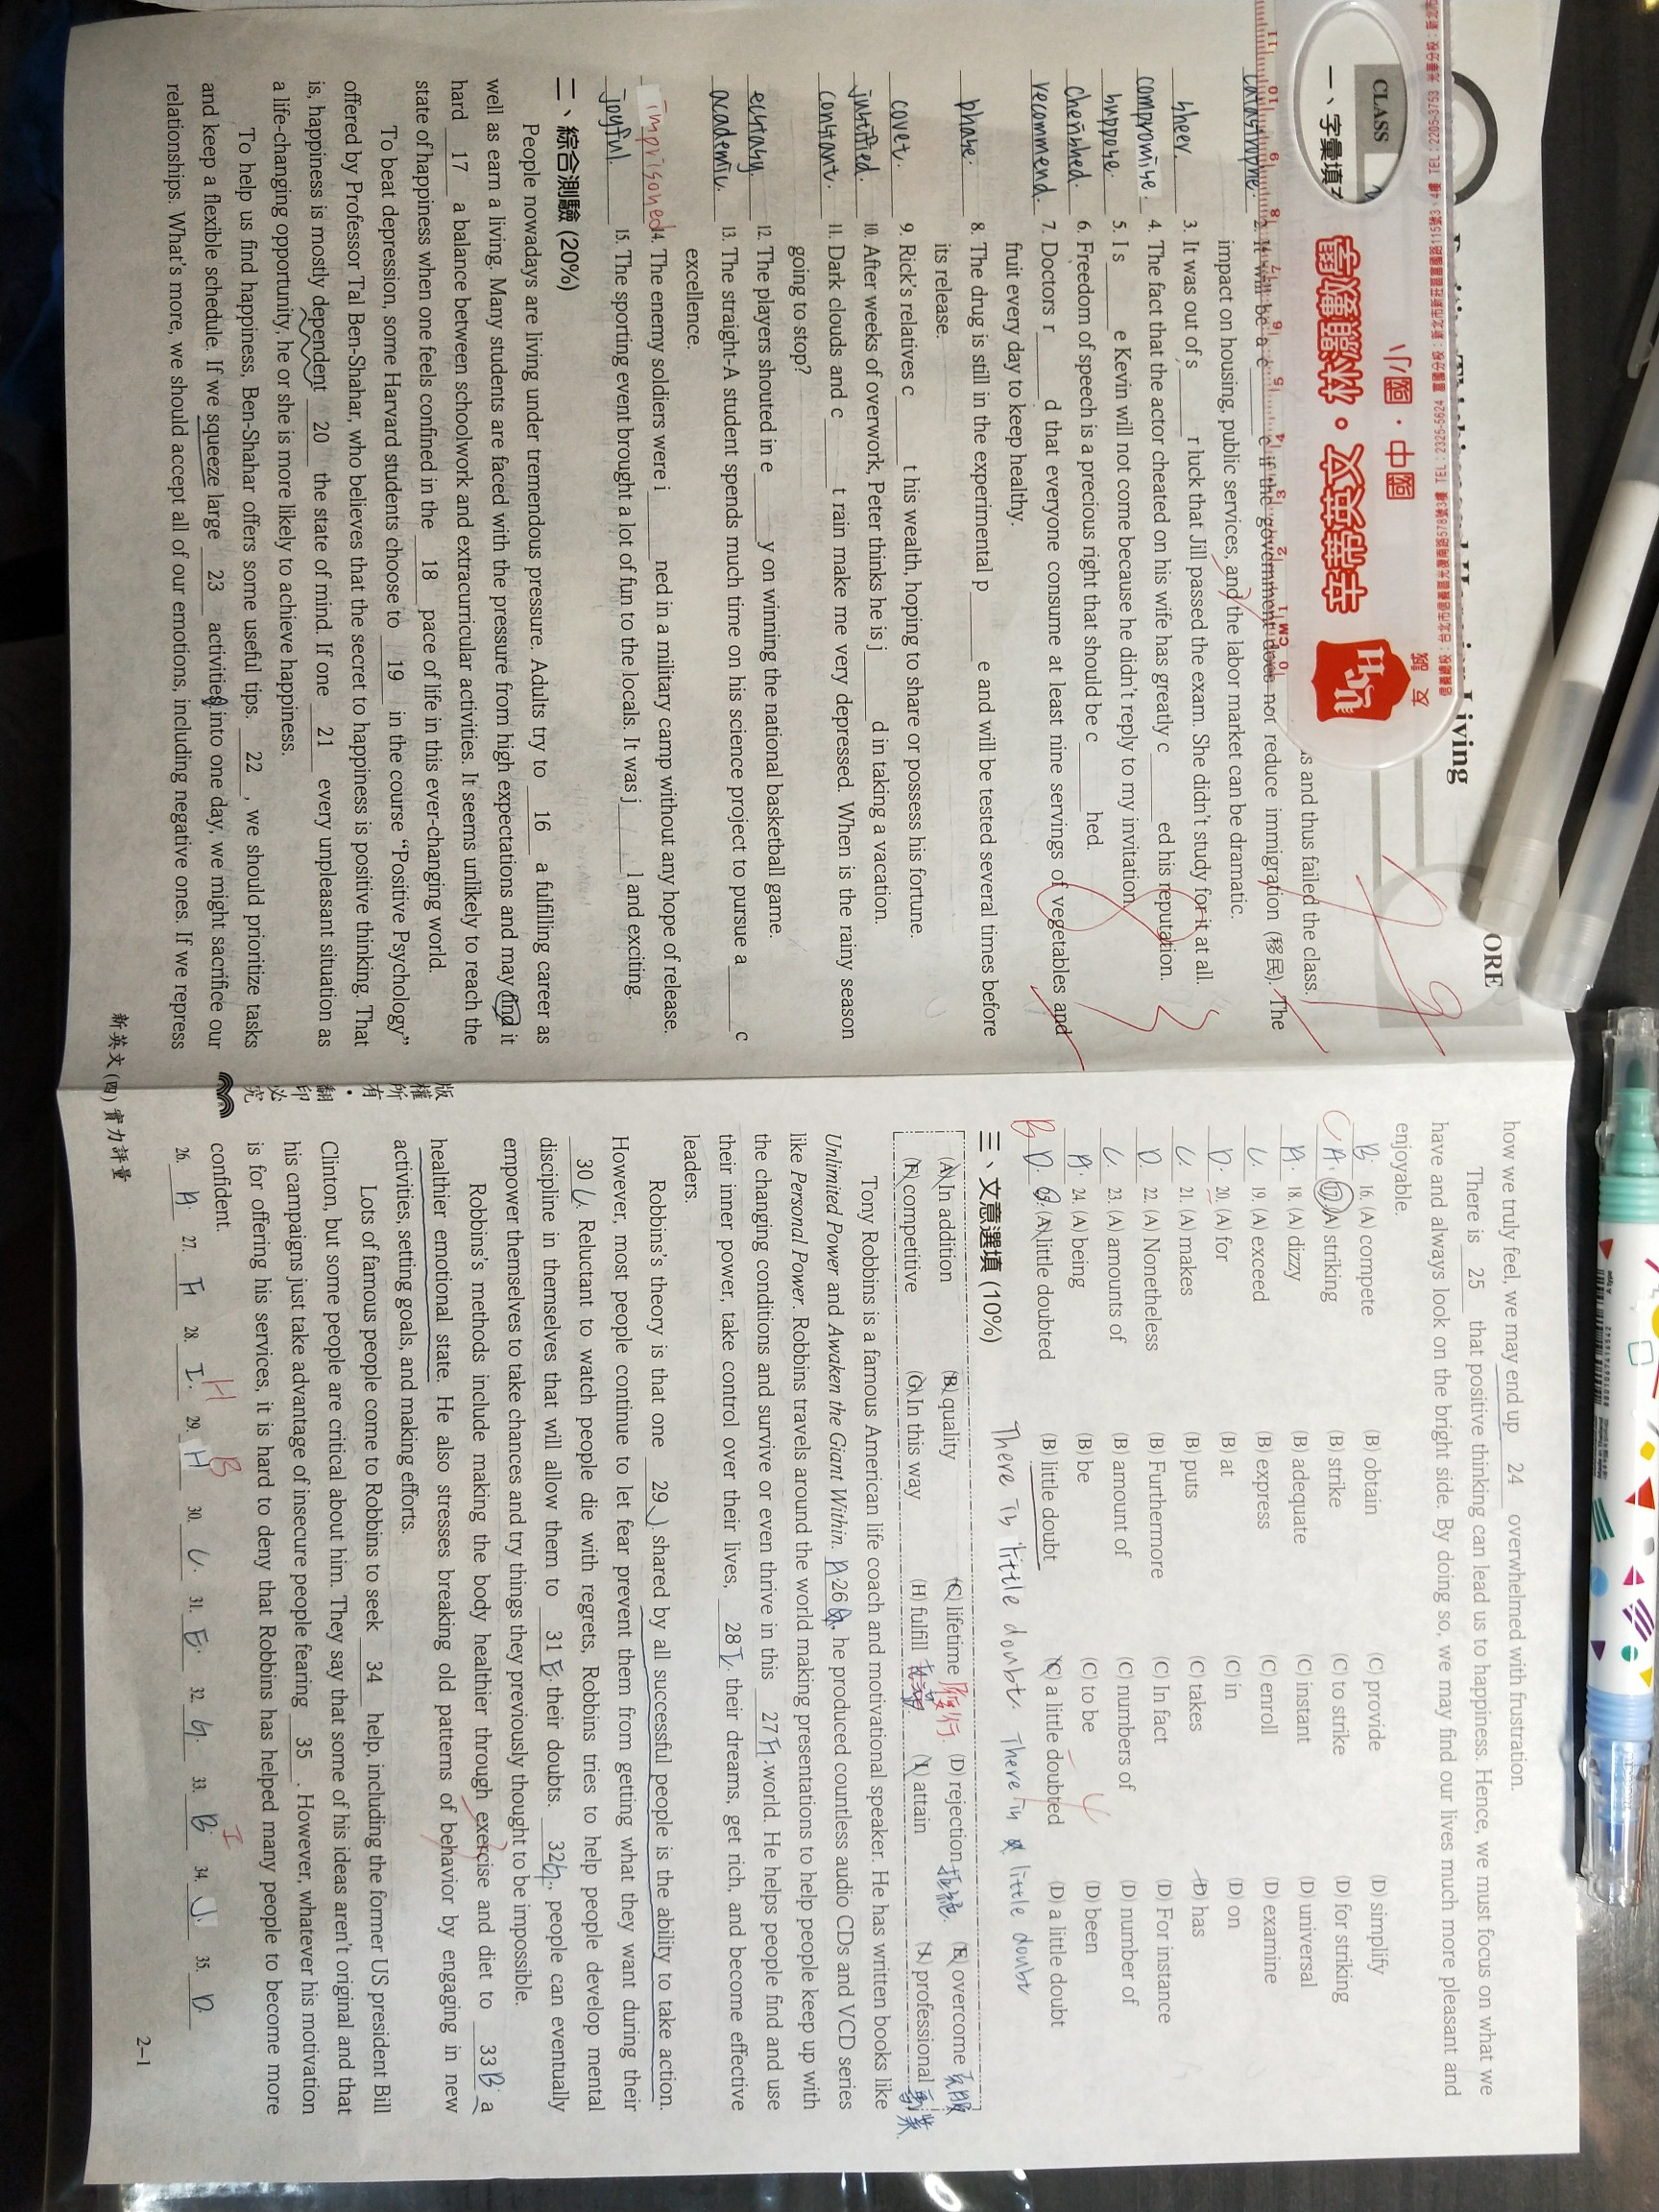 Living
ORE
CLASS
一、字彙填
s and thus failed the class.
2. It will be a c e if the government does not reduce immigration (移民). The
impact on housing, public services, and the labor market can be dramatic.
sheer. 3. It was out of s r luck that Jill passed the exam. She didn't study for it at all.
compromise. 4. The fact that the actor cheated on his wife has greatly c ed his reputation.
suppose. 5. I s e Kevin will not come because he didn't reply to my invitation.
cherished. 6. Freedom of speech is a precious right that should be c hed.
recommend. 7. Doctors r d that everyone consume at least nine servings of vegetables and
fruit every day to keep healthy.
phase. 8. The drug is still in the experimental p e and will be tested several times before
its release.
covet. 9. Rick's relatives c t his wealth, hoping to share or possess his fortune.
justified. 10. After weeks of overwork, Peter thinks he is j d in taking a vacation.
constant. 11. Dark clouds and c t rain make me very depressed. When is the rainy season
going to stop?
ecstasy. 12. The players shouted in e y on winning the national basketball game.
academic. 13. The straight-A student spends much time on his science project to pursue a c
excellence.
imprisoned 14. The enemy soldiers were i ned in a military camp without any hope of release.
joyful. 15. The sporting event brought a lot of fun to the locals. It was j l and exciting.
二、綜合測驗 (20%)
People nowadays are living under tremendous pressure. Adults try to 16 a fulfilling career as
well as earn a living. Many students are faced with the pressure from high expectations and may find it
hard 17 a balance between schoolwork and extracurricular activities. It seems unlikely to reach the
state of happiness when one feels confined in the 18 pace of life in this ever-changing world.
To beat depression, some Harvard students choose to 19 in the course "Positive Psychology"
offered by Professor Tal Ben-Shahar, who believes that the secret to happiness is positive thinking. That
is, happiness is mostly dependent 20 the state of mind. If one 21 every unpleasant situation as
a life-changing opportunity, he or she is more likely to achieve happiness.
To help us find happiness, Ben-Shahar offers some useful tips. 22 , we should prioritize tasks
and keep a flexible schedule. If we squeeze large 23 activities into one day, we might sacrifice our
relationships. What's more, we should accept all of our emotions, including negative ones. If we repress
新英文(四)實力評量
版權所有・翻印必究
how we truly feel, we may end up 24 overwhelmed with frustration.
There is 25 that positive thinking can lead us to happiness. Hence, we must focus on what we
have and always look on the bright side. By doing so, we may find our lives much more pleasant and
enjoyable.
B. 16. (A) compete (B) obtain (C) provide (D) simplify
C A. 17. (A) striking (B) strike (C) to strike (D) for striking
A. 18. (A) dizzy (B) adequate (C) instant (D) universal
C. 19. (A) exceed (B) express (C) enroll (D) examine
D. 20. (A) for (B) at (C) in (D) on
C. 21. (A) makes (B) puts (C) takes (D) has
D. 22. (A) Nonetheless (B) Furthermore (C) In fact (D) For instance
C. 23. (A) amounts of (B) amount of (C) numbers of (D) number of
A. 24. (A) being (B) be (C) to be (D) been
B D. 25. (A) little doubted (B) little doubt (C) a little doubted (D) a little doubt
There is little doubt. There is a little doubt
三、文意選填 (10%)
(A) In addition (B) quality (C) lifetime 履行. (D) rejection 拒絕. (E) overcome 克服
(F) competitive (G) In this way (H) fulfill (I) attain (J) professional
Tony Robbins is a famous American life coach and motivational speaker. He has written books like
Unlimited Power and Awaken the Giant Within. A 26 , he produced countless audio CDs and VCD series
like Personal Power. Robbins travels around the world making presentations to help people keep up with
the changing conditions and survive or even thrive in this 27 F. world. He helps people find and use
their inner power, take control over their lives, 28 I. their dreams, get rich, and become effective
leaders.
Robbins's theory is that one 29 shared by all successful people is the ability to take action.
However, most people continue to let fear prevent them from getting what they want during their
30 C. Reluctant to watch people die with regrets, Robbins tries to help people develop mental
discipline in themselves that will allow them to 31 E. their doubts. 32 G., people can eventually
empower themselves to take chances and try things they previously thought to be impossible.
Robbins's methods include making the body healthier through exercise and diet to 33 B. a
healthier emotional state. He also stresses breaking old patterns of behavior by engaging in new
activities, setting goals, and making efforts.
Lots of famous people come to Robbins to seek 34 help, including the former US president Bill
Clinton, but some people are critical about him. They say that some of his ideas aren't original and that
his campaigns just take advantage of insecure people fearing 35 . However, whatever his motivation
is for offering his services, it is hard to deny that Robbins has helped many people to become more
confident.
26. A. 27. F. 28. I. H 29. H B 30. C. 31. E. 32. G. 33. B. I 34. J. 35. D.
2-1